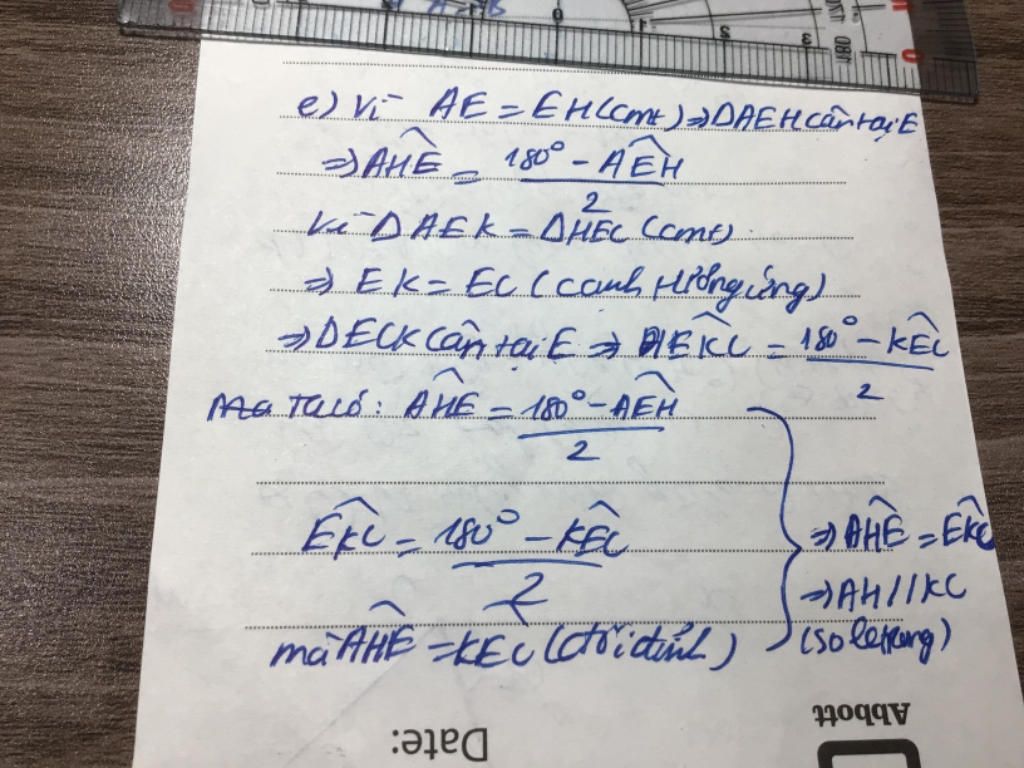 e) Vì AE = EH (cmt) ⇒ ΔAEH cân tại E
⇒ AHE^ = (180° - AEH^)/2
Vì ΔAEK = ΔHEC (cmt)
⇒ EK = EC (cạnh tương ứng)
⇒ ΔECK cân tại E ⇒ EKC^ = (180° - KEC^)/2
Ta có: AHE^ = (180° - AEH^)/2
EKC^ = (180° - KEC^)/2
⇒ AHE^ = EKC^
⇒ AH // KC
mà AHE^ = KEC (đối đỉnh)
(so le trong)
Abbott
Date: